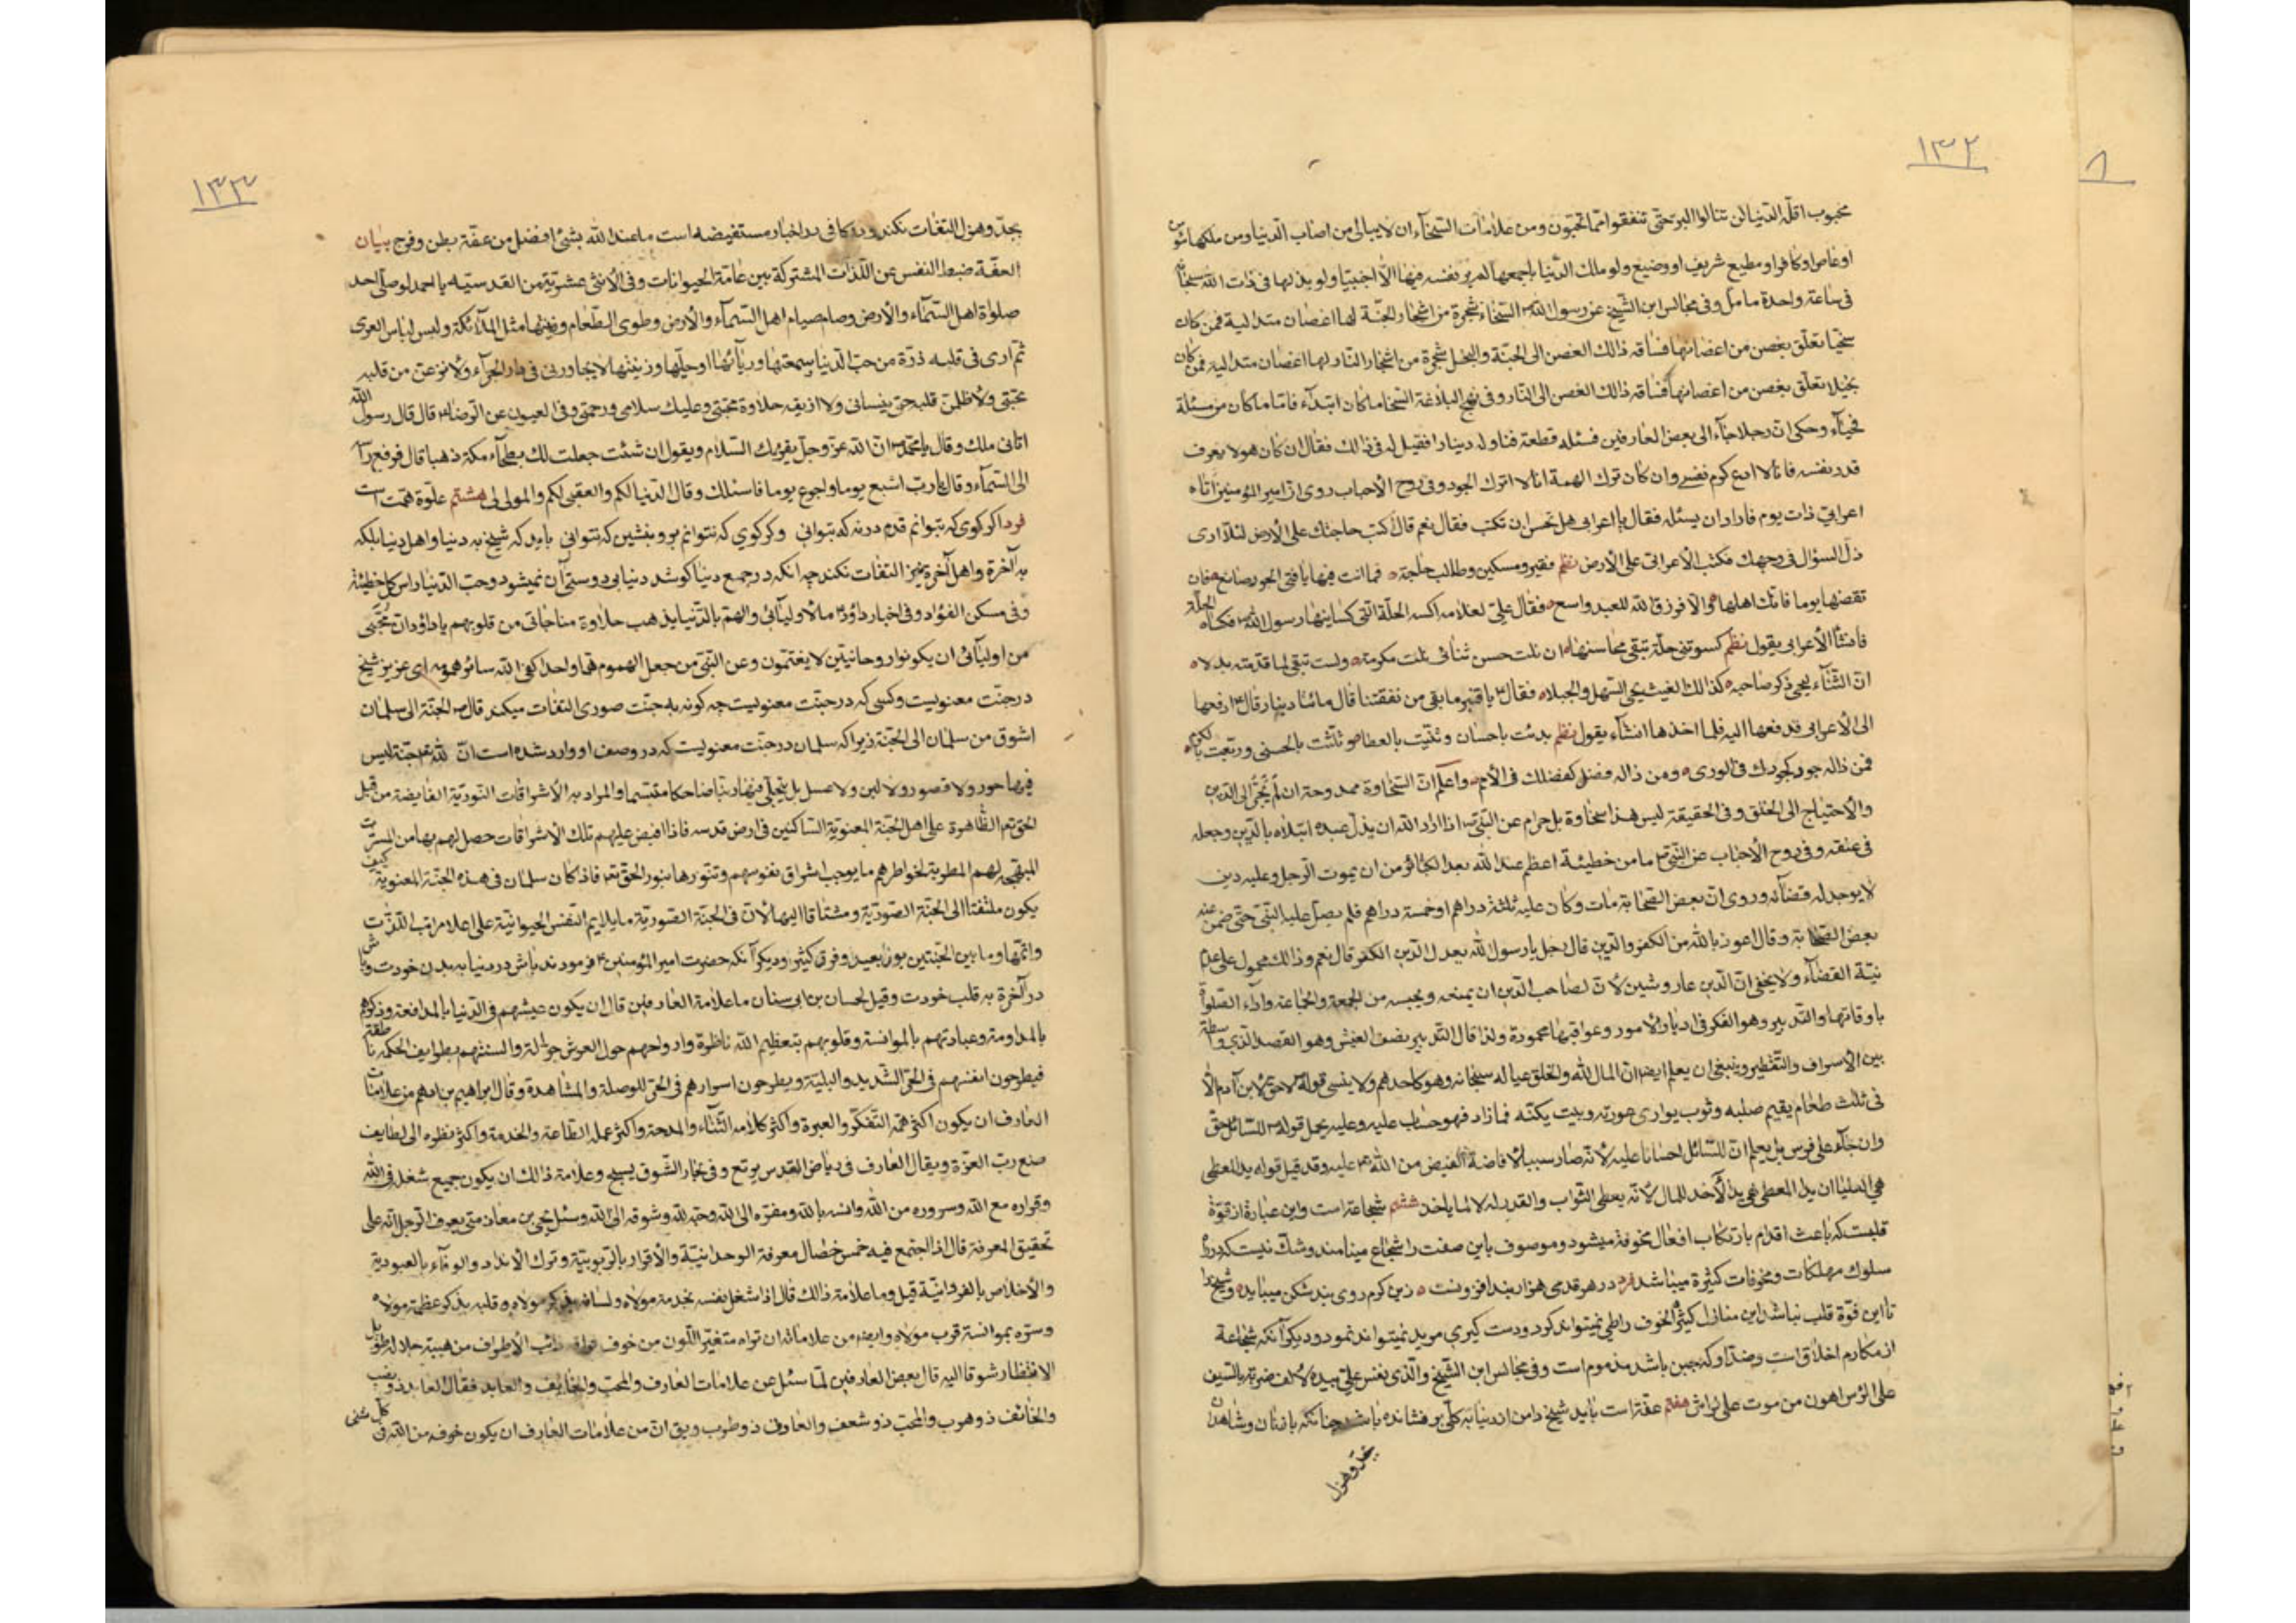 ١٣٢
محبوب اقلّه الدّنيا لن تنالوا البرّ حتّى تنفقوا ممّا تحبّون ومن علامات السّخآء ان لا يبالى من اصاب الدّنيا ومن ملكها مؤمن
او عاص او كافر او مطيع شريف او وضيع ولو ملك الدّنيا باجمعها لم ير نفسه فيها الّا اجنبيّا ولو بذلها فى ذات الله سبحانه
فى ساعة واحدة ما ملّ وفى مجالس ابن الشّيخ عن رسول الله ص السّخاء شجرة من اشجار الجنّة لها اغصان متدلّية فمن كان
سخيّا تعلّق بغصن من اغصانها فساقه ذالك الغصن الى الجنّة والبخل شجرة من اشجار النّار لها اغصان متدلية فمن كان
بخيلا تعلّق بغصن من اغصانها فساقه ذالك الغصن الى النّار وفى نهج البلاغة السّخا ما كان ابتدآء فامّا ما كان من مسئلة
فحيآء وحكى انّ رجلا جآء الى بعض العارفين فسئله قطعة فناوله دينارا فقيل له فى ذالك فقال ان كان هو لا يعرف
قدر نفسه فانا لا ادع كرم نفسى وان كان ترك الهمة انا لا اترك الجود وفى روح الأحباب روى انّ امير المؤمنين اتاه
اعرابىّ ذات يوم فاراد ان يسئله فقال يا اعرابى هل تحسن ان تكتب فقال نعم قال اكتب حاجتك على الأرض لئلّا ارى
ذلّ السؤال فى وجهك فكتب الأعرابى على الأرض نظم فقير ومسكين وطالب حاجة فما انت فيها يا فتى الجود صانع فان
تقضها يوما فانّك اهلها والّا فرزق الله للعبد واسع فقال علىّ لغلامه اكسه الحلّة الّتى كسانيها رسول الله ص فكساه الحلّة
فانشأ الأعرابى يقول نظم كسوتنى حلّة تبقى محاسنها ان نلت حسن ثنائى نلت مكرمة ولست تبقى لما قدّمته بدلا
انّ الثّنآء يحيى ذكر صاحبه كذالك الغيث يحيى السّهل والجبلا فقال يا قنبر ما بقى من نفقتنا قال مائتا دينار قال ارفعها
الى الأعرابى فدفعها اليه فلمّا اخذها انشآء يقول نظم بدئت باحسان وثنّيت بالعطا وثلّثت بالحسنى وربّعت بالكرم
فمن ذا له جود كجودك فى الورى ومن ذا له فضل كفضلك فى الأمم واعلم انّ السّخاوة ممدوحة ان لم تجرّ الى الدّين
والأحتياج الى الخلق وفى الحقيقة ليس هذا سخاوة بل حرام عن النّبى ص اذا اراد الله ان يذلّ عبده ابتلاه بالدّين وجعله
فى عنقه وفى روح الأحباب عن النّبى ص ما من خطيئة اعظم عند الله بعد الكبائر من ان يموت الرّجل وعليه دين
لا يوجد له قضآئه وروى انّ بعض الصّحابة مات وكان عليه ثلثة دراهم او خمسة دراهم فلم يصلّ عليه النّبىّ حتّى ضمن عنه
بعض الصّحابة وقال اعوذ بالله من الكفر والدّين قال رجل يا رسول الله يعدل الدّين الكفر قال نعم وذالك محمول على عدم
نيّة القضآء ولا يخفى انّ الدّين عار وشين لأنّ لصاحب الدّين ان يمنعه ويحبسه من الجمعة والجماعة وادآء الصّلوة
باوقاتها والتّدبير وهو الفكر فى ادبار الأمور وعواقبها محمودة ولذا قال التّدبير نصف العيش وهو القصد الّذى واسطة
بين الأسراف والتّقطير وينبغى ان يعلم ايضا انّ المال لله والخلق عياله سبحانه وهو كاحدهم ولا ينسى قوله ص لا حقّ لابن آدم الّا
فى ثلث طعام يقيم صلبه وثوب يوارى عورته وبيت يكنّه فما زاد فهو حساب عليه وعليه يحمل قوله ص للسّائل حقّ
وان جآء على فرس بل يعلم انّ للسّائل احسانا عليه لأنّه صار سببا لأفاضة الفيض من الله تع عليه وقد قيل قوله يد المعطى
هى العليا ان يد المعطى هى يد الآخذ للمال لأنّه يعطى الثّواب والقدر له لا لما ياخذ ششم شجاعة است واين عبارة از قوّة
قلبست كه باعث اقدام بارتكاب افعال مخوفة ميشود وموصوف باين صفت را شجاع مينامند وشكّ نيست كه در راه
سلوك مهلكات ومخوفات كثيرة ميباشد فرد در هر قدمى هزار بند افزونست زين گرم روى بند شكن ميبايد وشيخ را
تا اين قوّة قلب نباشد اين منازل كثير الخوف را طى نميتواند كرد ودست گيرى مريد نميتواند نمود وديگر آنكه شجاعة
از مكارم اخلاق است وضدّ او كه جبن باشد مذموم است وفى مجالس ابن الشّيخ والّذى نفس علىّ بيده لألف ضربة بالسّيف
على الرّاس اهون من موت على فراش هفتم عفّة است بايد شيخ دامن از دنيا به كلّى بر فشانده باشد چنانكه بازنان وشاهدان
بجدّ وهزل
١٣٣
بجدّ وهزل التفات نكند ودر كافى در اخبار مستفيضه است ما عند الله بشئ افضل من عفّة بطن وفرج بيان
العفّة ضبط النفس عن اللّذات المشتركة بين عامّة الحيوانات وفى الأثنى عشريّة من القدسيّه يا احمد لو صلّى احد
صلوة اهل السّمآء والأرض وصام صيام اهل السّمآء والأرض وطوى الطّعام مثل الملآئكة ولبس لباس العرى
ثمّ ارى فى قلبه ذرّة من حبّ الدّنيا او سمعتها او ريآئها او حليّها او زينتها لا يجاورنى فى دار الجزآء ولأنزعنّ من قلبه
محبّتى ولأظلمنّ قلبه حتّى ينسانى ولا اذيقه حلاوة محبّتى وعليك سلامى ورحمتى وفى العيون عن الرّضا قال قال رسول الله
اتانى ملك وقال يا محمّد انّ الله عزّ وجلّ يقرئك السّلام ويقول ان شئت جعلت لك بطحآء مكّة ذهبا قال فرفع رأسه
الى السّمآء وقال يا ربّ اشبع يوما واجوع يوما فاسئلك وقال الدّنيا لكم والعقبى لكم والمولى لى هشتم علوّة همّت است
فرد اگر گوى كه بتوانم قدم در نه كه بتوانى وگر گوي كه نتوانم برو بنشين كه نتوانى بايد كه شيخ به دنيا واهل دنيا بلكه
به آخرة واهل آخرة نيز التفات نكند چه انكه در جمع دنيا كوشد دنيا بى دوستى آن نميشود وحبّ الدّنيا راس كلّ خطيئة
وفى مسكن الفؤاد وفى اخبار داؤد ما لأوليآئى والهمّ بالدّنيا يذهب حلاوة مناجاتى من قلوبهم يا داؤد انّ محبّتى
من اوليآئى ان يكونوا روحانيّين لا يغتمّون وعن النّبى من جعل الهموم همّا واحدا كفى الله سائر همومه اى عزيز شيخ
در جنّت معنويست وكسى كه در جنّت معنويست چه گونه به جنّت صورى التفات ميكند قال ص الجنّة الى سلمان
اشوق من سلمان الى الجنّة زيرا كه سلمان در جنّت معنويست كه در وصف او وارد شده است انّ لله تع جنّة ليس
فيها حور ولا قصور ولا لبن ولا عسل بل يتجلّى فيها ربّنا ضاحكا متبسّما والمراد به الأشراقات النّوريّة الفايضة من قبل
الحق تع الظّاهرة على اهل الجنّة المعنويّة السّاكنين فى ارض قدسه فاذا افيض عليهم تلك الأشراقات حصل لهم بها من المسرّت
المبهجة لهم المطربة لخواطرهم ما يوجب اشراق نفوسهم وتنوّرها بنور الحقّ تع فاذ كان سلمان فى هذه الجنّة المعنويّة كيف
يكون ملتفتا الى الجنّة الصّوريّة ومشتاقا اليها لأنّ فى الجنّة الصّوريّة ما يلايم النّفس الحيوانيّة على اعلا مراتب اللّذّت
واتمّها وما بين الجنّتين بون بعيد وفرق كثير وديگر آنكه حضرت امير المؤمنين فرمودند باش در دنيا به بدن خودت وباش
در آخرة به قلب خودت وقيل لحسان بن ابى سنان ما علامة العارفين قال ان يكون عيشهم فى الدّنيا بالمدافعة وذكرهم
بالمداومة وعبادتهم بالموانسة وقلوبهم بتعظيم الله ناظرة وارواحهم حول العرش جوّالة والسنتهم بطوايف الحكمة ناطقة
فيطرحون انفسهم فى الشّديد والبليّة ويطرحون اسرارهم فى الحقّ للوصلة والمشاهدة وقال ابراهيم بن ادهم من علامات
العارف ان يكون اكثر همّه التّفكّر والعبرة واكثر كلامه الثّنآء والمدحة واكثر عمله الطّاعة والخدمة واكثر نظره الى لطايف
صنع ربّ العزّة ويقال العارف فى رياض القدس يرتع وفى بحار الشّوق يسبح وعلامة ذالك ان يكون جميع شغله فى الله
وقراره مع الله وسروره من الله وانسه بالله ومفرّه الى الله وحبّه لله وشوقه الى الله وسئل يحيى بن معاذ متى يعرف الرّجل انّه على
تحقيق المعرفة قال اذا اجتمع فيه خمس خصال معرفة الوحدانيّة والأقرار بالرّبوبيّة وترك الأنداد والوفآء بالعبودية
والأخلاص بالفردانيّة قيل وما علامة ذالك قال اذا شغل نفسه بخدمة مولاه ولسانه بذكر مولاه وقلبه بذكر عظمة مولاه
وسرّه بموانسة قرب مولاه وايضا من علاماته ان تراه متغيّر اللّون من خوف ذائب الأطراف من هيبة جلاله طويل
الانتظار شوقا اليه قال بعض العارفين لمّا سئل عن علامات العارف والمحبّ والخايف والعابد فقال العابد ذو نصب
والخائف ذو هرب والمحبّ ذو شعف والعارف ذو طرب ويق انّ من علامات العارف ان يكون خوفه من الله فى كلّ شئى